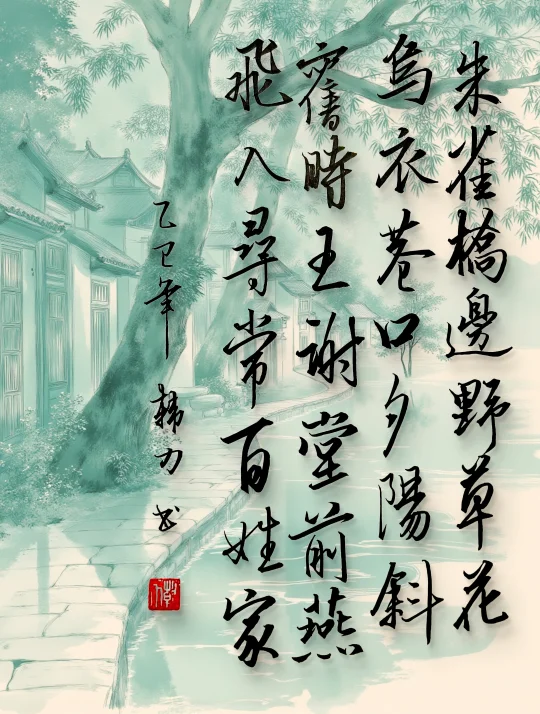 朱雀橋邊野草花
烏衣巷口夕陽斜
舊時王謝堂前燕
飛入尋常百姓家
乙巳年 韩力书